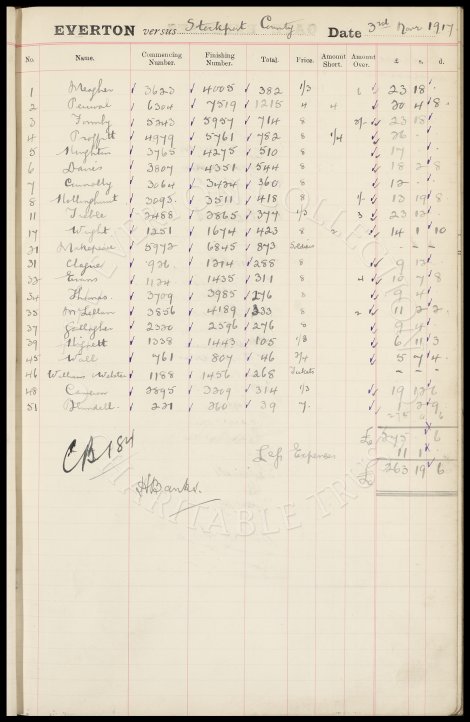 EVERTON versus Stockport County Date 3rd Novr 1917
No. Name. Commencing Number. Finishing Number. Total. Price. Amount Short. Amount Over. £ s. d.
1 Meagher 3623 4005 382 1/3 6 23 18
2 Percival 6304 7519 1215 4 4 20 4 8
3 Formby 5243 5957 714 8 23 18
4 Proffitt 4979 5761 782 8 1/4 26
5 3765 4275 510 8 17
6 Davies 3807 4351 544 8 18 2 8
7 Connolly 3064 3424 360 8 12
8 Mollinghurst 3093 3511 418 8 13 19 8
11 Tribble 3488 3865 377 1/3 3 23 12
17 Wight 1251 1674 423 8 14 1 10
21 Makepeace 5972 6845 873 Soldiers
31 Clague 926 1214 288 8 9 12
33 Evans 1124 1435 311 8 4 10 7 8
34 Thomas 3709 3985 276 8 9 4
35 McLellan 3856 4189 333 8 2 11 2 2
37 Gallagher 2320 2596 276 8 9 4
39 Hignett 1338 1443 105 1/3 6 11 3
45 Wall 761 807 46 2/4 5 7 4
46 William Webster 1188 1456 268 Tickets
48 Cameron 2895 3209 314 1/3 19 12 6
51 Blundell 221 260 39 7 1 2 9
£ 6
CB 184 Less Expenses 11 1
£ 263 19 6
H Banks.
EVERTON COLLECTION
CHARITABLE TRUST